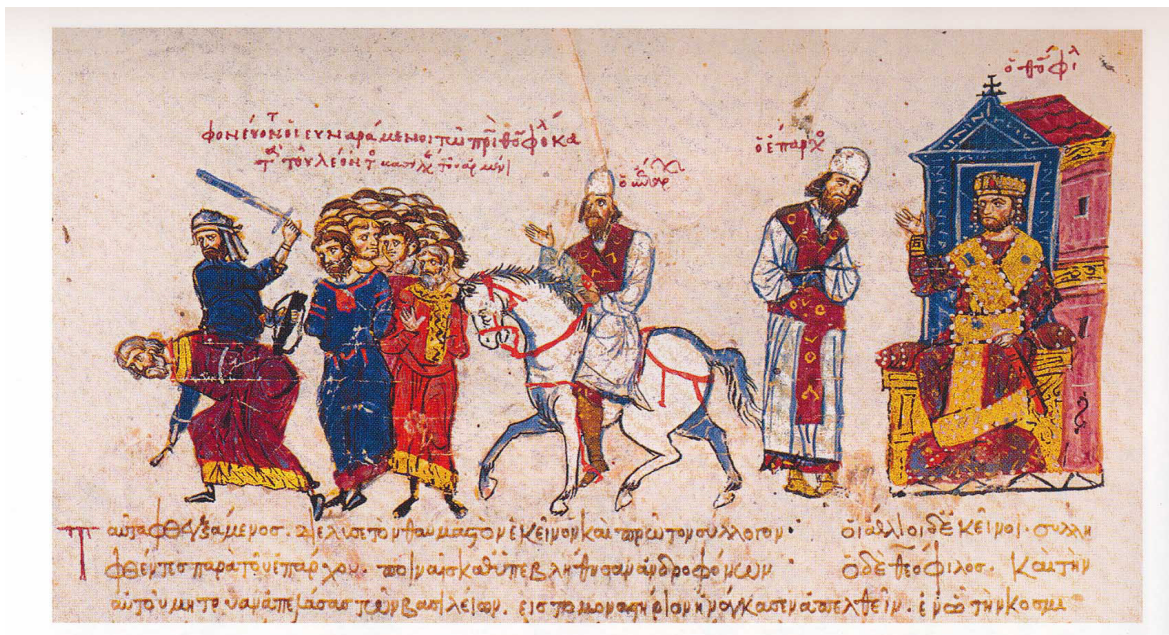 ὁ θεόφιλ
φονεύοντ οἱ συναράμενοι τῶ πρὶ θεοφ κα
τοῦ λέοντ τοῦ ἀρμενί
ὁ ἔπαρχ
ὁ ἔπαρχ
Ταῦτα φθεγξάμενος. διέλυσε τὸν θαυμαστὸν ἐκεῖνον καὶ πρῶτον σύλλογον· οἱ ἄθλιοι δὲ κεῖνοι. συλλη
φθέντες παρὰ τοῦ ἐπάρχου. ποιναῖς καθυπεβλήθησαν ἀνδροφόνων ὁ δὲ θεόφιλος. καὶ τὴν
αὐτοῦ ἀπελάσας τῶν βασιλείων. εἰς τὸ μοναστήριον ἠνάγκασεν ἀπελθεῖν. ἐν ᾧ τὴν κοσμι